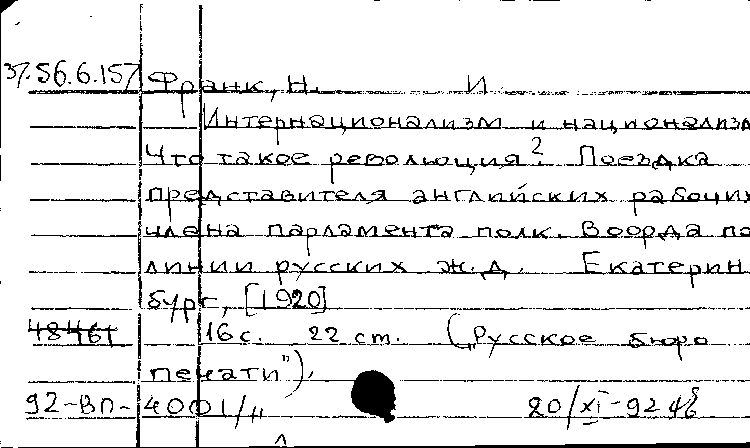 37.56.6.157 Франк, Н. И
Интернационализм и национализм
Что такое революция? Поездка
представителя английских рабочих
члена парламента полк. Воорда по
линии русских ж.д. Екатерин
бург, [1920]
48461 16 с. 22 ст. („Русское бюро
печати").
92-ВП-4001/11 20/XI-92